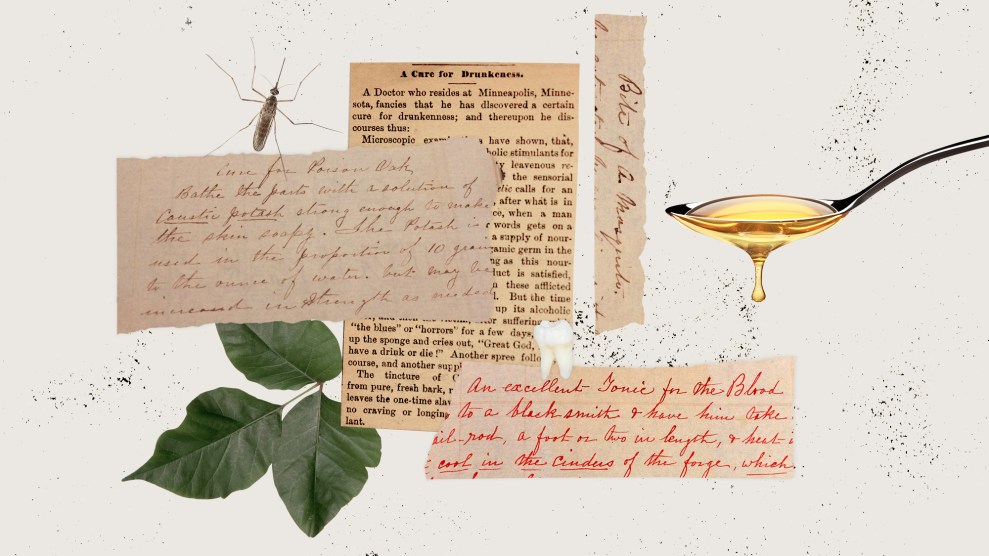 A Cure for Drunkeness.
A Doctor who resides at Minneapolis, Minne-
sota, fancies that he has discovered a certain
cure for drunkenness; and thereupon he dis-
courses thus:
Microscopic have shown, that,
stimulants for
leavenous re-
the sensorial
calls for an
, after what is in
, when a man
words gets on a
a supply of nour-
germ in the
as this nour-
is satisfied,
in these afflicted
But the time
up its alcoholic
suffering
"the blues" or "horrors" for a few days,
up the sponge and cries out, "Great God,
have a drink or die!" Another spree
course, and another
The tincture of
from pure, fresh bark,
leaves the one-time
no craving or longing
lant.
Cure for Poison Oak
Bathe the parts with a solution of
Caustic potash strong enough to make
the skin soapy. The Potash is
used in the proportion of 10 grains
to the ounce of water. but may be
increased in strength as needed
Bite of a Mosquito.
An excellent Tonic for the Blood
to a blacksmith & have him take
rod, a foot or two in length, & heat
cool in the cinders of the forge, which